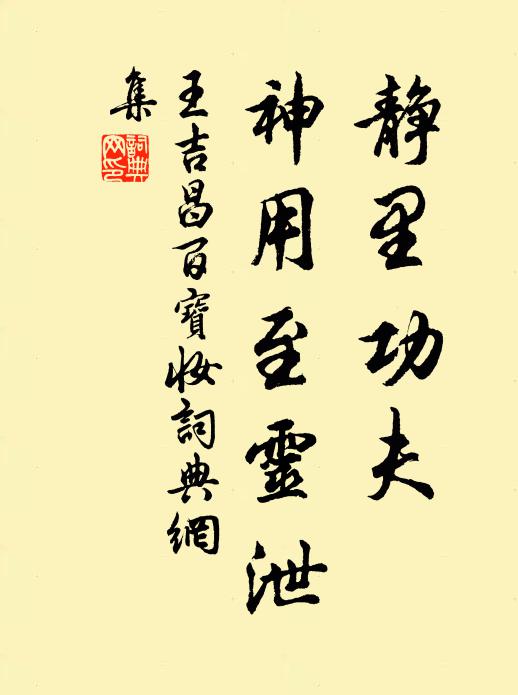 静里功夫
神用至靈泄
王吉昌百寶妝詞典網
集
詞典
網印